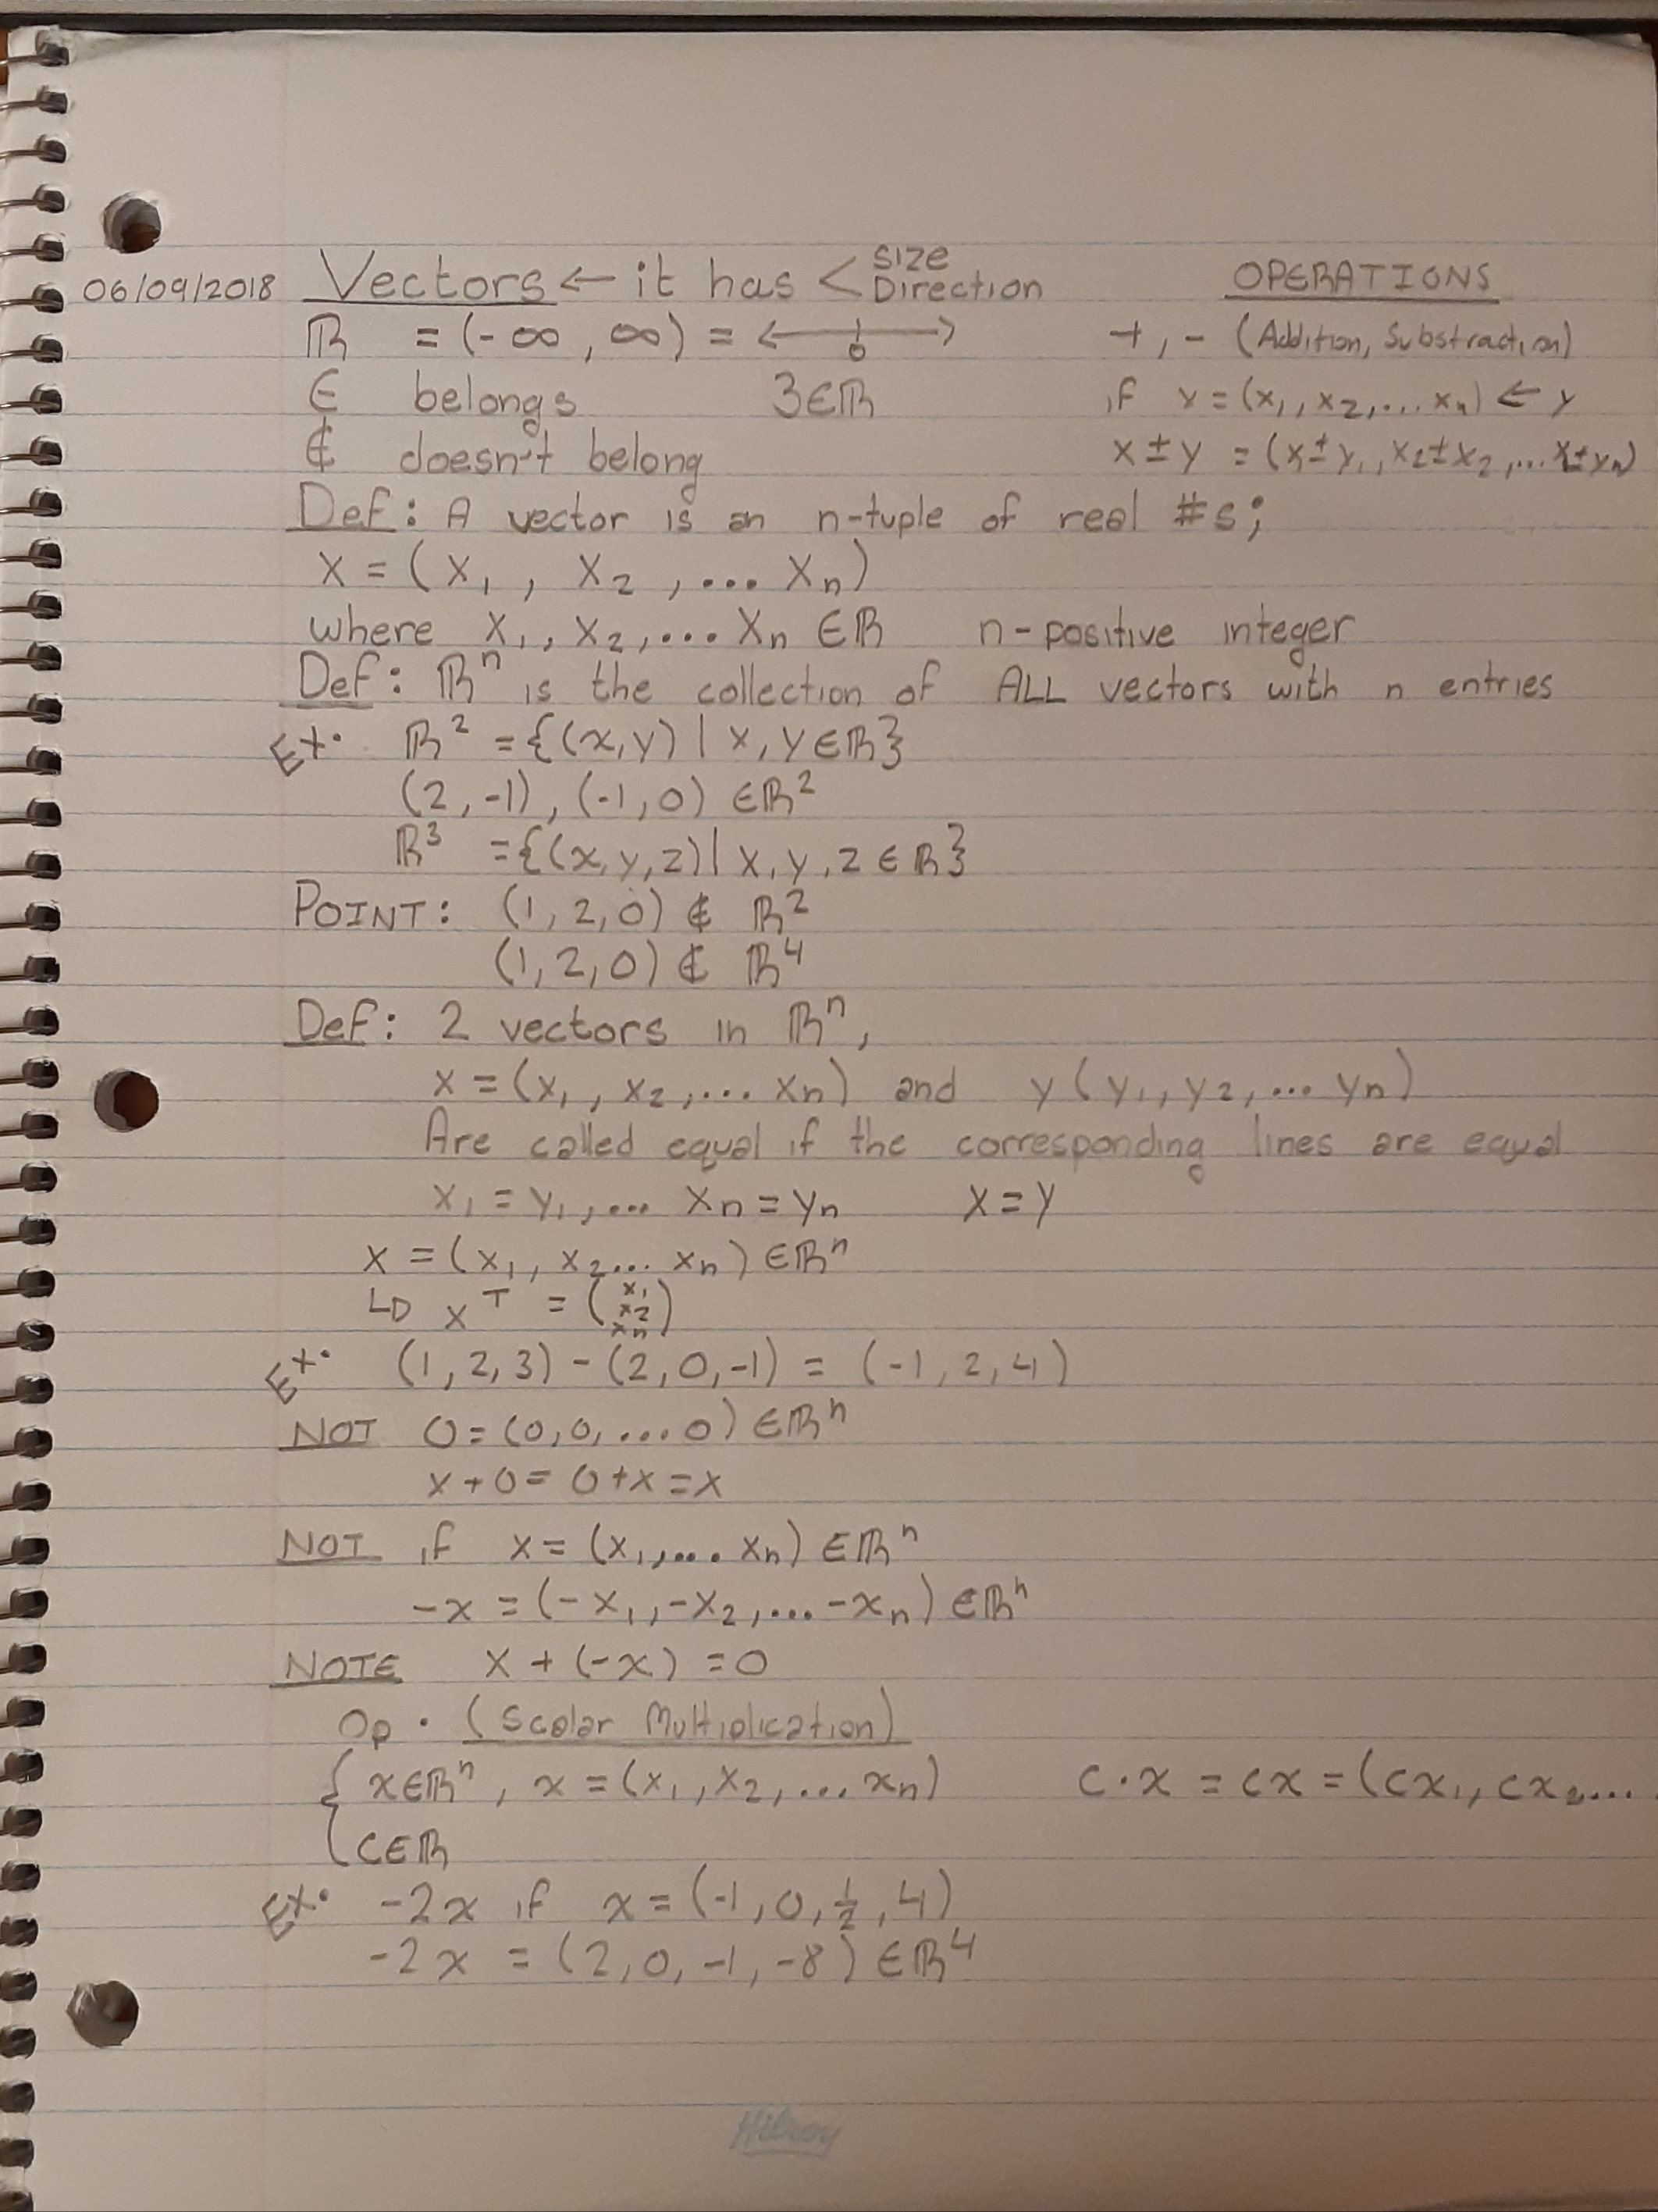 06/09/2018 Vectors ← it has < size Direction
ℝ = (-∞, ∞) = <—0—>
∈ belongs 3∈ℝ
∉ doesn't belong
OPERATIONS
+, - (Addition, Substraction)
if x = (x₁, x₂, ... xₙ) ← y
x ± y = (x₁± y₁, x₂± x₂, ... xₙ± yₙ)
Def: A vector is an n-tuple of real #s;
X = (X₁, X₂, ... Xₙ)
where X₁, X₂, ... Xₙ ∈ℝ n-positive integer
Def: ℝⁿ is the collection of ALL vectors with n entries
Ex. ℝ² = {(x,y) | x, y ∈ℝ}
(2, -1), (-1, 0) ∈ℝ²
ℝ³ = {(x, y, z) | x, y, z ∈ ℝ}
POINT: (1, 2, 0) ∉ ℝ²
(1, 2, 0) ∉ ℝ⁴
Def: 2 vectors in ℝⁿ,
x = (x₁, x₂, ... xₙ) and y (y₁, y₂, ... yₙ)
Are called equal if the corresponding lines are equal
x₁ = y₁, ... xₙ = yₙ x = y
x = (x₁, x₂ ... xₙ) ∈ℝⁿ
↳ xᵀ = (x₁ x₂ xₙ)
Ex. (1, 2, 3) - (2, 0, -1) = (-1, 2, 4)
NOT 0 = (0, 0, ... 0) ∈ℝⁿ
x + 0 = 0 + x = x
NOT if x = (x₁, ... xₙ) ∈ℝⁿ
-x = (-x₁, -x₂, ... -xₙ) ∈ℝⁿ
NOTE x + (-x) = 0
Op · (Scalar Multiplication)
{ x∈ℝⁿ, x = (x₁, x₂, ... xₙ) c·x = cx = (cx₁, cx₂ ...
c∈ℝ
Ex. -2x if x = (-1, 0, ½, 4)
-2x = (2, 0, -1, -8) ∈ℝ⁴
Hilroy